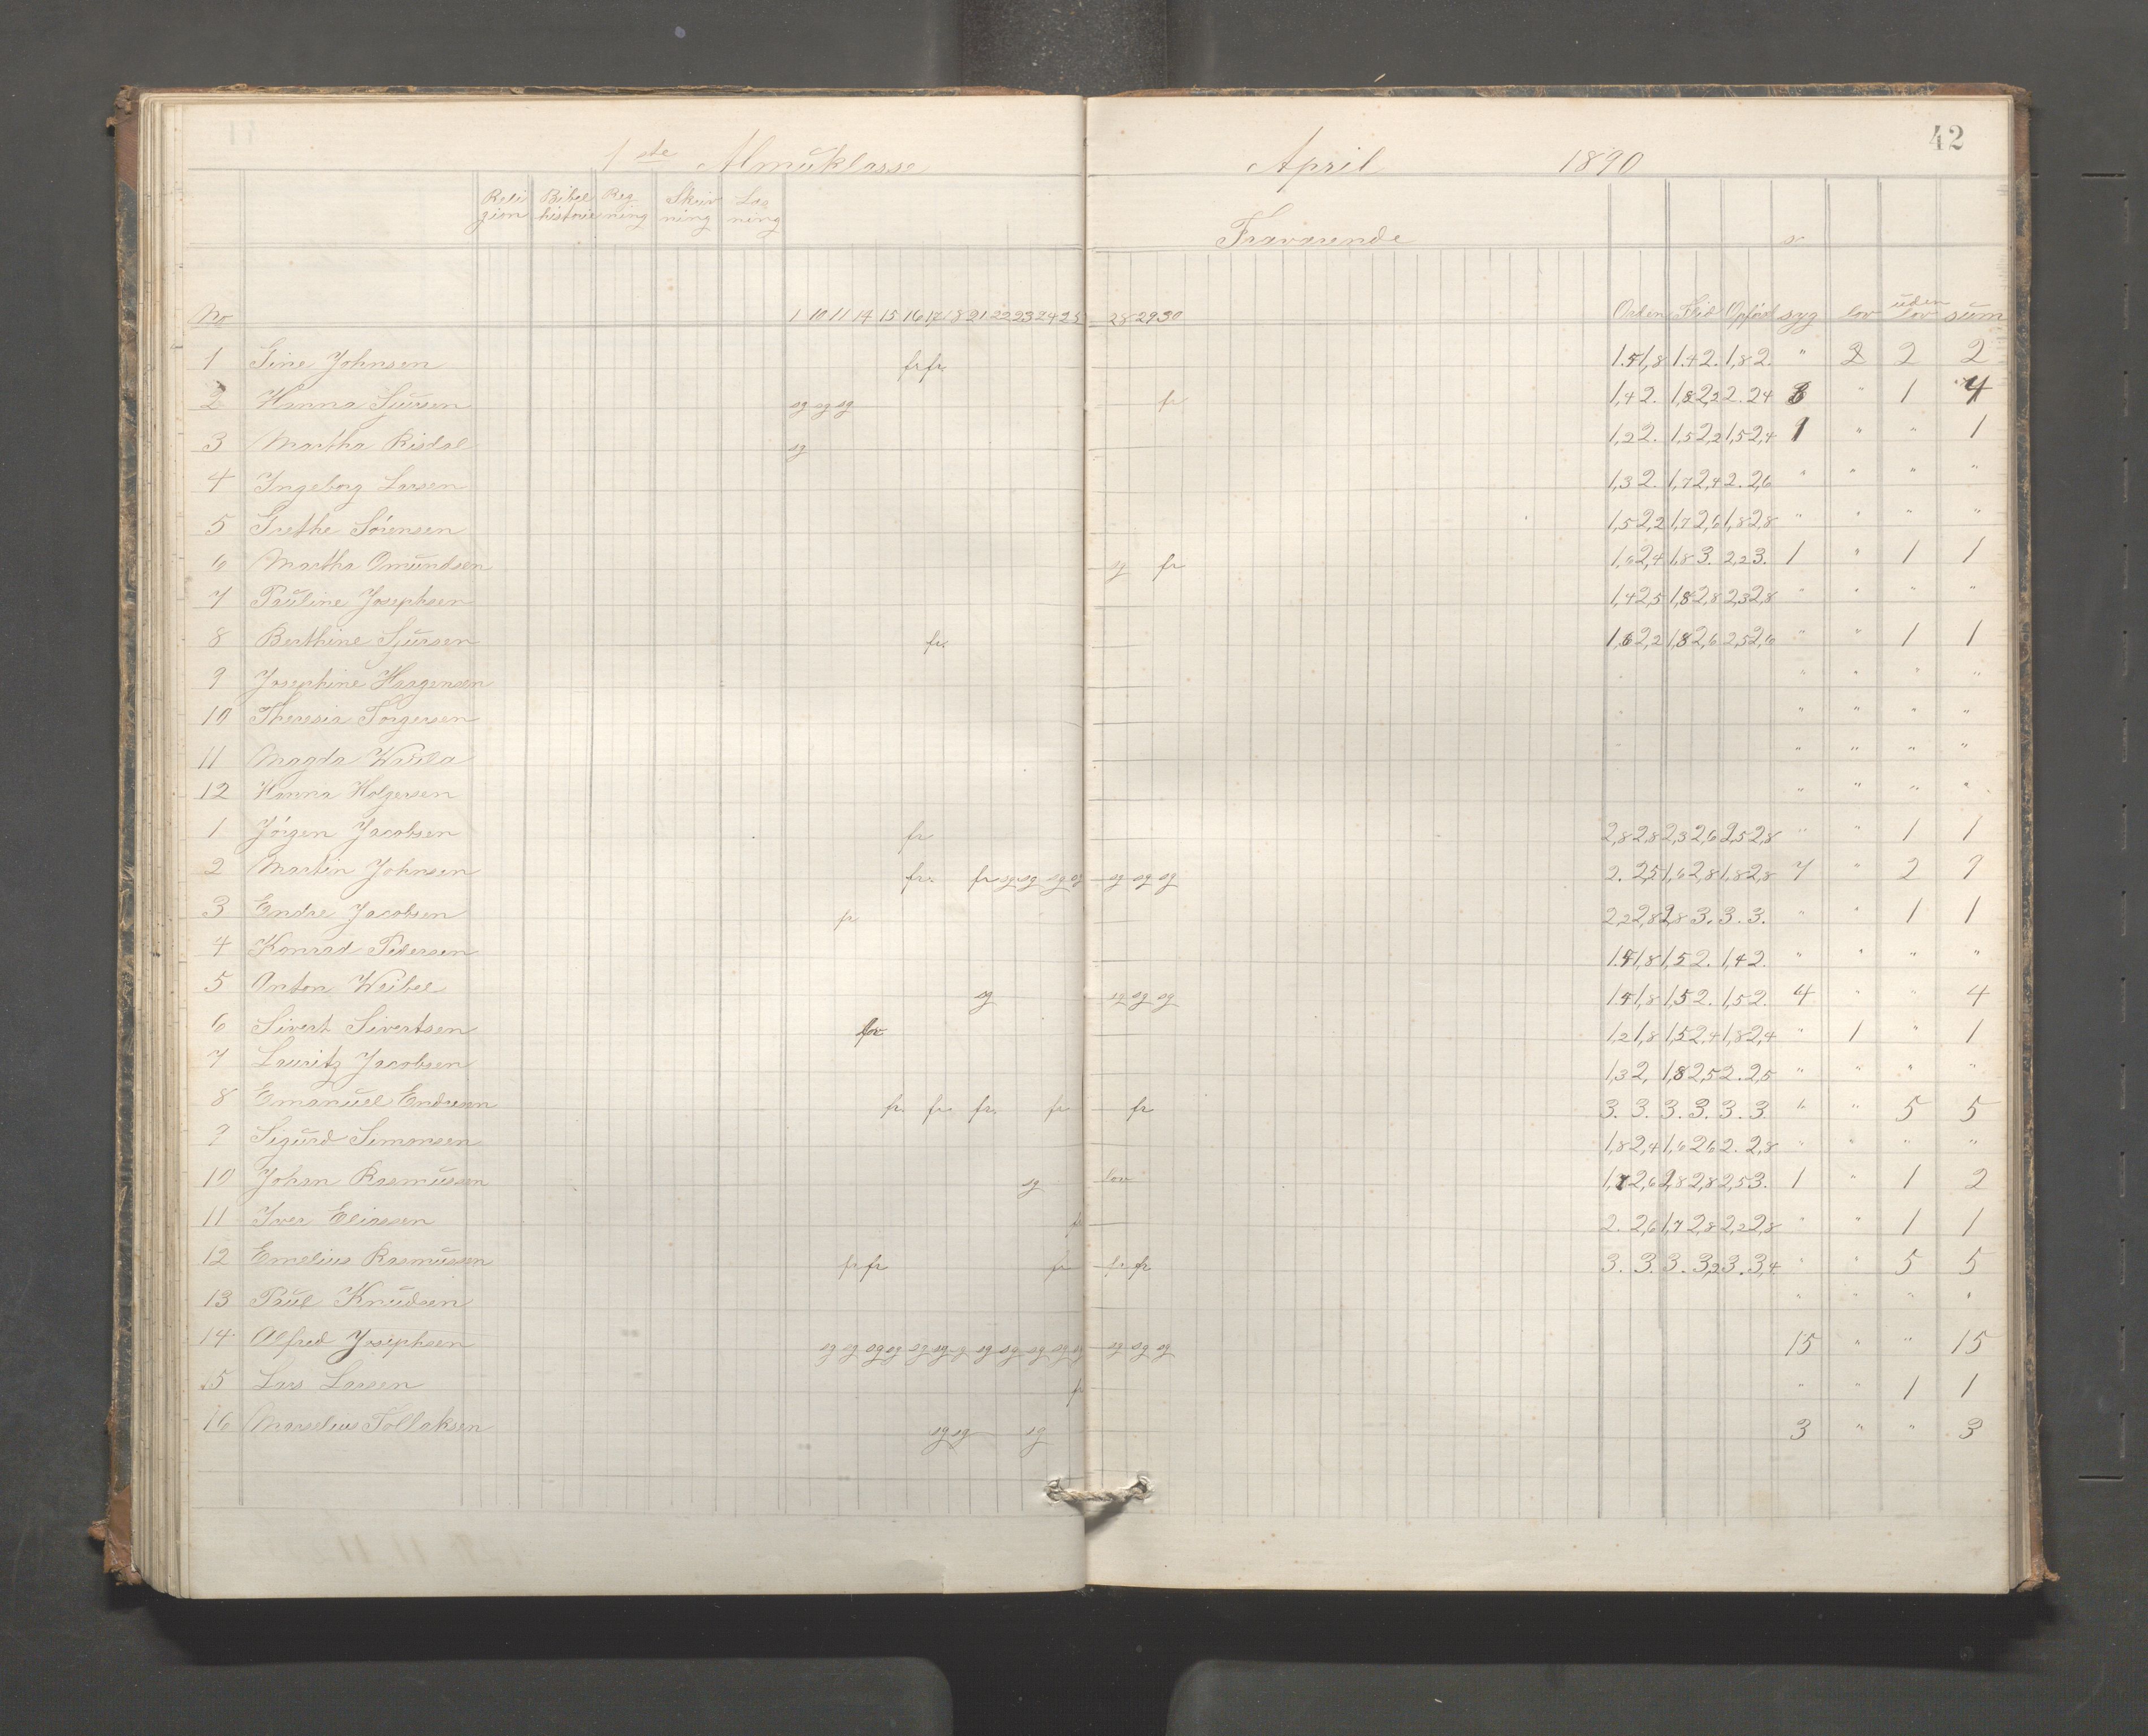 42
1ste Almuklasse April 1890
Religion Bibelhistorie Regning Skrivning Læsning
Fraværende
No 1 10 11 14 15 16 17 18 21 22 23 24 25 28 29 30 Orden Flid Opførs syg lov uden lov sum
1 Sine Johnsen fr fr. 1.5 1,8 1.4 2. 1,8 2. " 2 2 2
2 Hanna Sjursen sg sg sg fr 1,4 2. 1,8 2,2 2. 2 4 3 " 1 4
3 Martha Risdal sg 1,2 2. 1,5 2,2 1,5 2,4 1 " " 1
4 Ingeborg Larsen 1,3 2. 1,7 2,4 2. 2,6 " " " "
5 Grethe Sørensen 1,5 2,2 1,7 2,6 1,8 2,8 " " " "
6 Martha Omundsen sg fr 1,6 2,4 1,8 3. 2,2 3. 1 " 1 1
7 Pauline Josephsen 1,4 2,5 1,8 2,8 2,3 2,8 " " " "
8 Berthine Sjursen fr. 1,6 2,2 1,8 2,6 2,5 2,6 " " 1 1
9 Josephine Haagensen " " " "
10 Theresia Torgersen " " " "
11 Magda " " " "
12 Hanna Holgersen " " " "
1 Jørgen Jacobsen fr 2,8 2,8 2,3 2,6 2,5 2,8 " " 1 1
2 Martin Johnsen fr. fr sg sg sg sg sg sg sg 2. 2,5 1,6 2,8 1,8 2,8 7 " 2 9
3 Endre Jacobsen fr 2,2 2,8 2,8 3. 3. 3. " " 1 1
4 Konrad Pedersen 1.5 1,8 1,5 2. 1,4 2. " " " "
5 Anton Weibel sg sg sg sg 1.5 1,8 1,5 2. 1,5 2. 4 " " 4
6 Sivert Sivertsen lov 1,2 1,8 1,5 2,4 1,8 2,4 " 1 " 1
7 Lauritz Jacobsen 1,3 2, 1,8 2,5 2. 2,5 " " " "
8 Emanuel Endresen fr. fr. fr. fr fr 3. 3. 3. 3. 3. 3 " " 5 5
9 Sigurd Simonsen 1,8 2,4 1,6 2 6 2. 2,8 " " " "
10 Johan Rasmussen sg lov 1,7 2,6 2,8 2,8 2,5 3. 1 " 1 2
11 Iver Eliassen f 2. 2,6 1,7 2,8 2,2 2,8 " " 1 1
12 Emelius Rasmussen fr fr fr fr fr 3. 3. 3. 3,2 3. 3,4 " " 5 5
13 Paul Knudsen " " " "
14 Alfred Josephsen sg sg sg sg sg sg sg sg sg sg sg sg sg sg sg 15 " " 15
15 Lars Larsen f " " 1 1
16 Marselius Tollaksen sg sg sg 3 " " 3